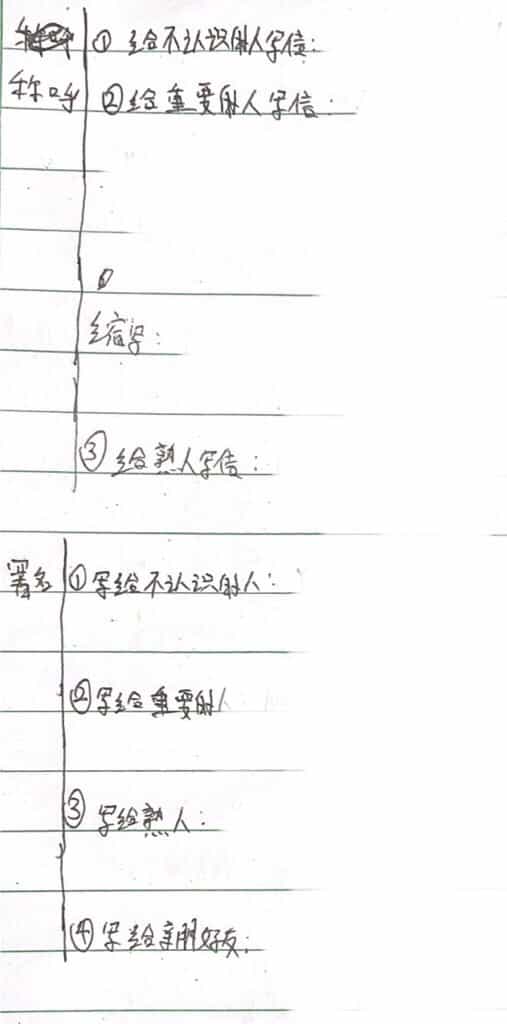 ① 给不认识的人写信:
称呼 ② 给重要的人写信:
缩写:
③ 给熟人写信:
署名 ① 写给不认识的人:
② 写给重要的人
③ 写给熟人:
④ 写给亲朋好友: